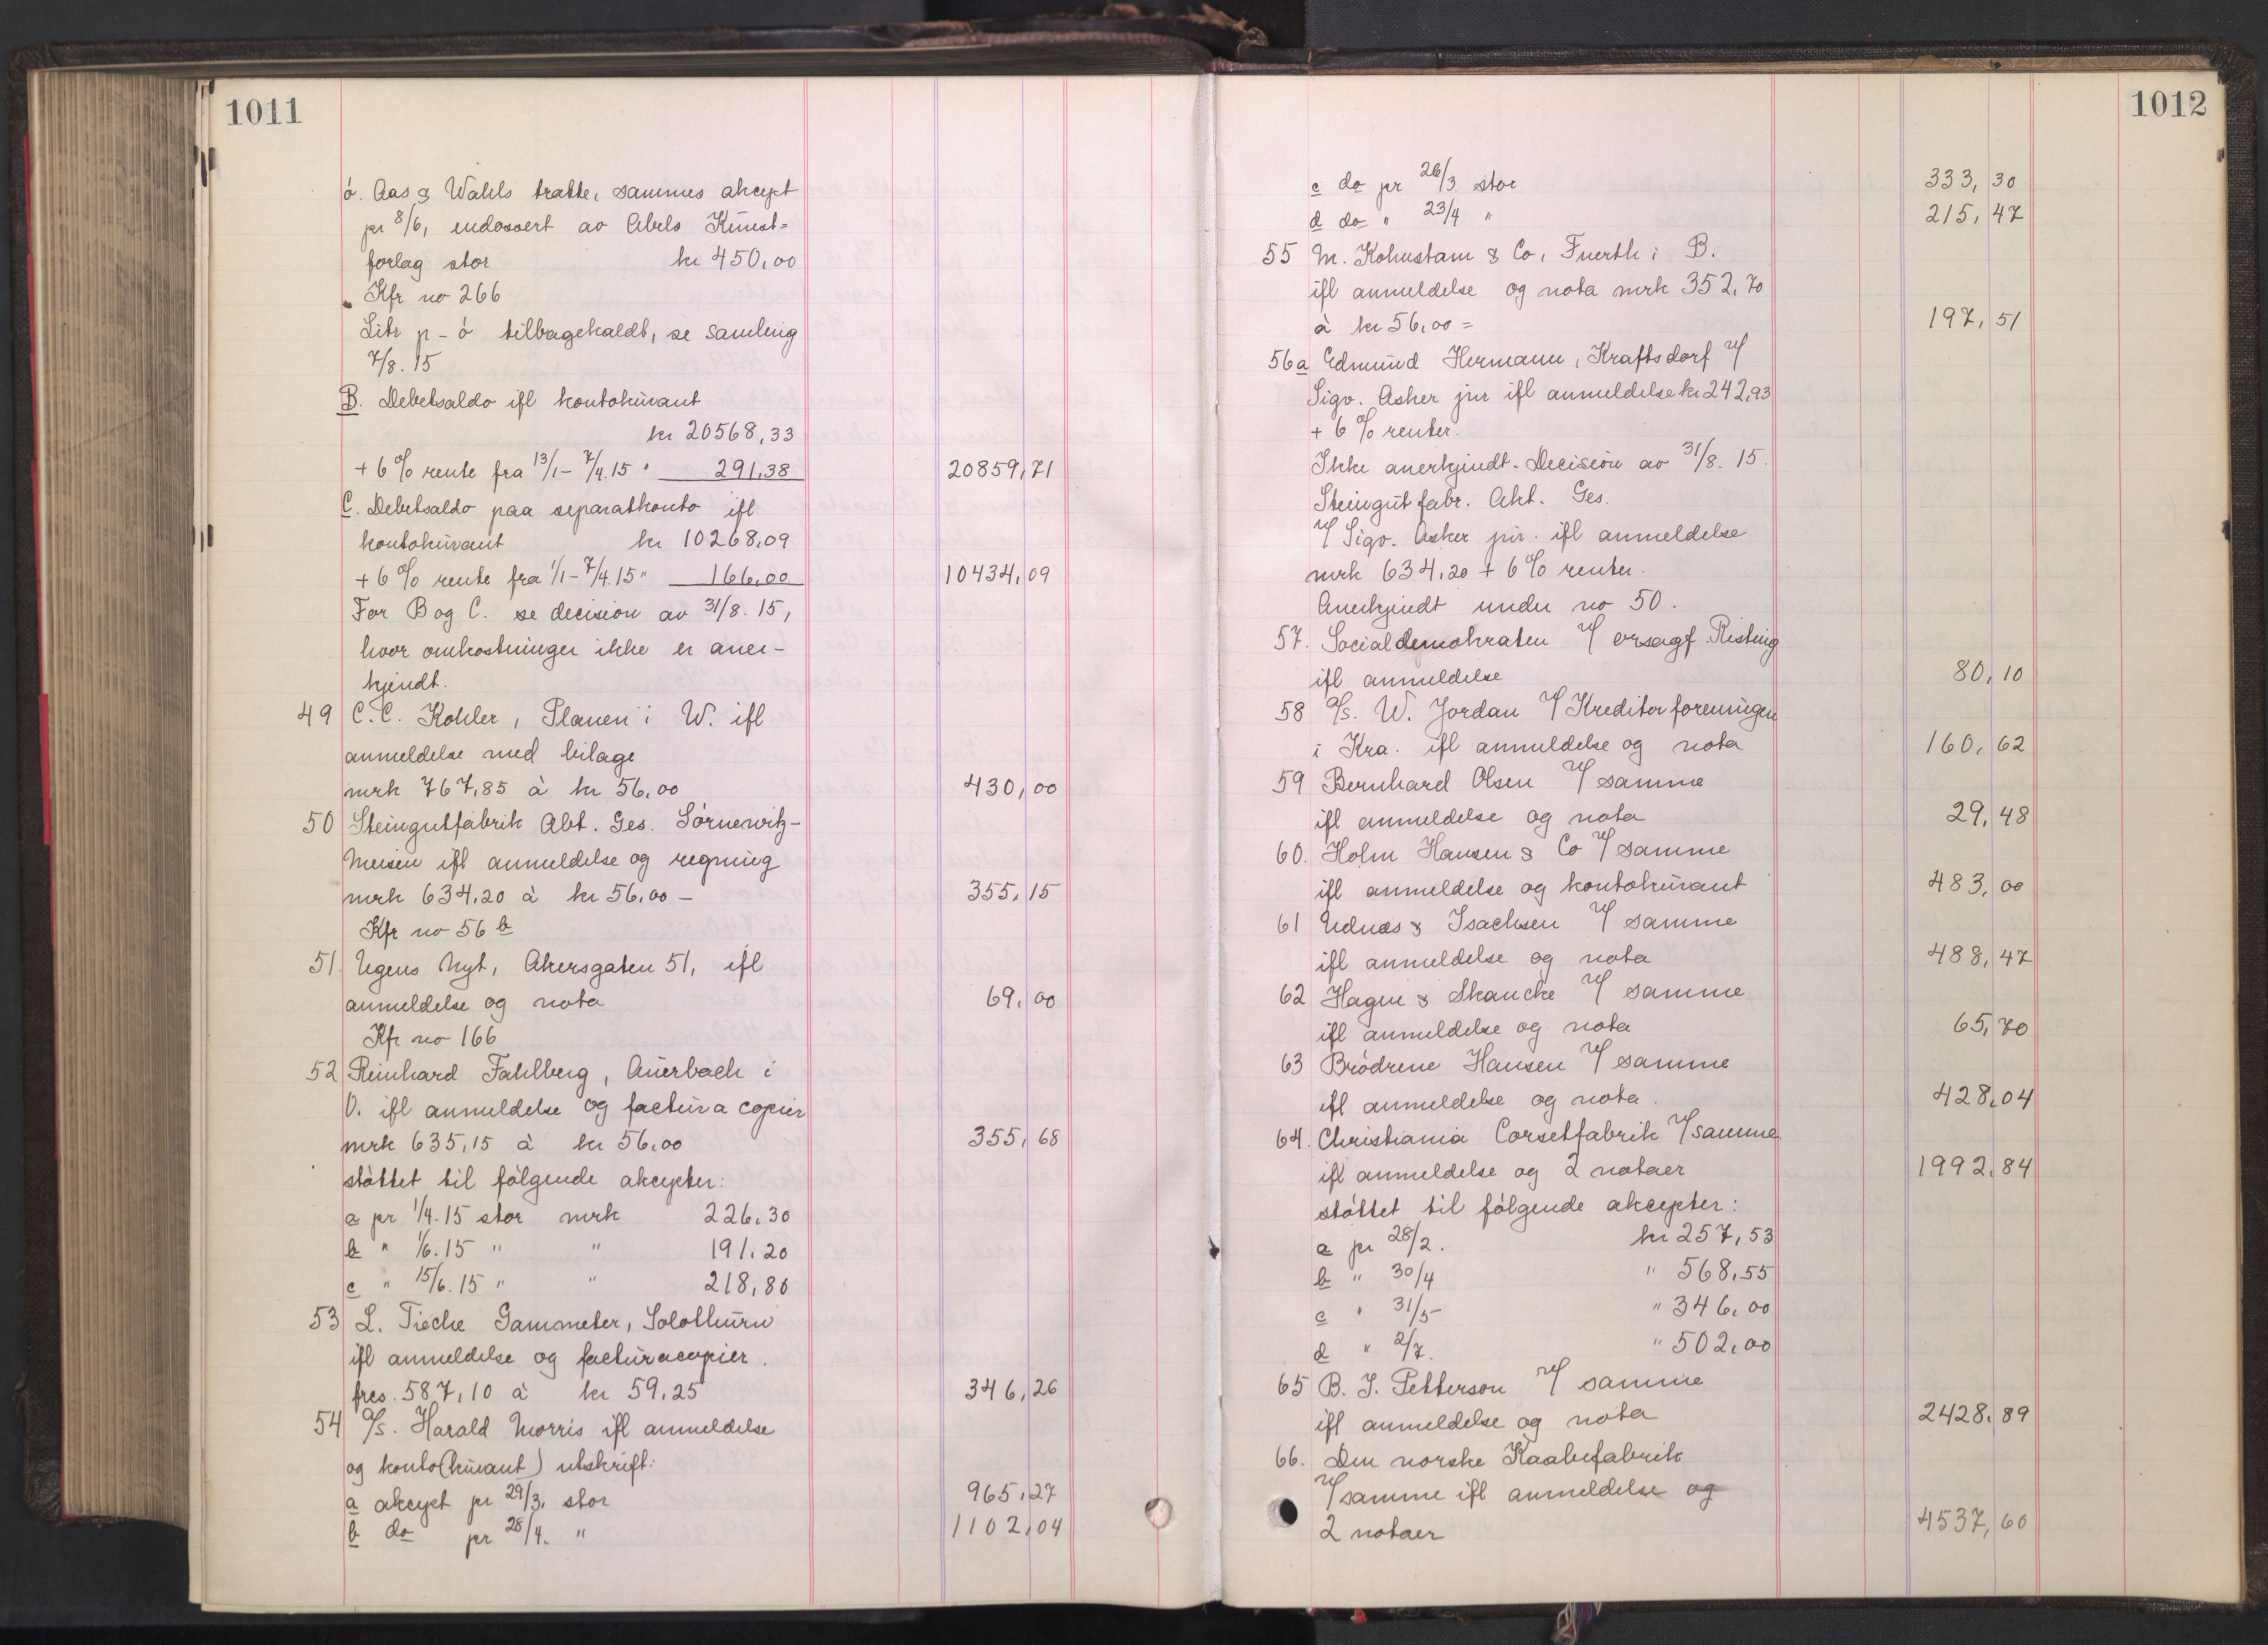 1011
ó. Aas & Wahls tratte, sammes akcept
pr 8/6, endossert av Abels Kunst=
forlag stor kr 450,00
Kfr no 266
Litr p - ó tilbagekaldt, se samling
7/8. 15
B. Debetsaldo ifl kontokurant
kr 20568,33
+ 6% rente fra 13/1 - 7/4.15 " 291,38 20859,71
C. Debetsaldo paa separatkonto ifl
kontokurant kr 10268,09
+ 6% rente fra 1/1 - 7/4.15 " 166,00 10434,09
For B og C. se decision av 31/8. 15,
hvor omkostninger ikke er aner-
kjendt.
49 C. C. Kohler, Planen i W. ifl
anmeldelse med bilage
mrk 767,85 à kr 56,00 430,00
50 Steingutfabrik Akt. Ges. Sörnewitz-
Meisen ifl anmeldelse og regning
mrk 634,20 à kr 56,00 - 355,15
Kfr no 56 b
51. Ugens Nyt, Akersgaten 51, ifl
anmeldelse og nota 69,00
Kfr no 166
52 Reinhard Fahlberg, Auerbach i
V. ifl anmeldelse og factura copier
mrk 635,15 à kr 56,00 355,68
støttet til følgende akcepter:
a pr 1/4.15 stor mrk 226,30
b " 1/6.15 " " 191,20
c " 15/6.15 " " 218,80
53 L. Tieche Gammeter, Solothurn
ifl anmeldelse og facturacopier.
frcs. 587,10 à kr 59,25 346,26
54 A/S. Harald Morris ifl anmeldelse
og konto(kurant) utskrift:
a akcept pr 29/3, stor 965,27
b do pr 28/4. " 1102,04
1012
c do pr 26/3 stor 333,30
d do " 23/4 " 215,47
55 M. Kohnstam & Co, Fuerth i B.
ifl anmeldelse og nota mrk 352,70
à kr 56,00 = 197,51
56a Edmund Hermann, Kraftsdorf v/
Sigv. Asker jnr ifl anmeldelse kr 242,93
+ 6% renter.
Ikke anerkjendt. Decision av 31/8. 15.
Steingutfabr. Akt. Ges.
v/ Sigv. Asker jnr. ifl anmeldelse
mrk 634,20 + 6% renter.
Anerkjendt under no 50.
57. Socialdemokraten v/ orsagf. Risting
ifl anmeldelse 80,10
58 A/S. W. Jordan v/ Kreditorforeningen
i Kra. ifl anmeldelse og nota 160,62
59 Bernhard Olsen v/ samme
ifl anmeldelse og nota 29,48
60. Holm Hansen & Co v/ samme
ifl anmeldelse og kontokurant 483,00
61 Udnæs & Isachsen v/ samme
ifl anmeldelse og nota 488,47
62 Hagen & Skancke v/ samme
ifl anmeldelse og nota 65,70
63 Brødrene Hansen v/ samme
ifl anmeldelse og nota. 428,04
64. Christiania Corsetfabrik v/ samme
ifl anmeldelse og 2 notaer 1992,84
støttet til følgende akcepter:
a pr 28/2. kr 257,53
b " 30/4 " 568,55
c " 31/5 " 346,00
d " 2/7. " 502,00
65 B. J. Petterson v/ samme
ifl anmeldelse og nota 2428,89
66. Den norske Kaabefabrik
v/ samme ifl anmeldelse og
2 notaer 4537,60